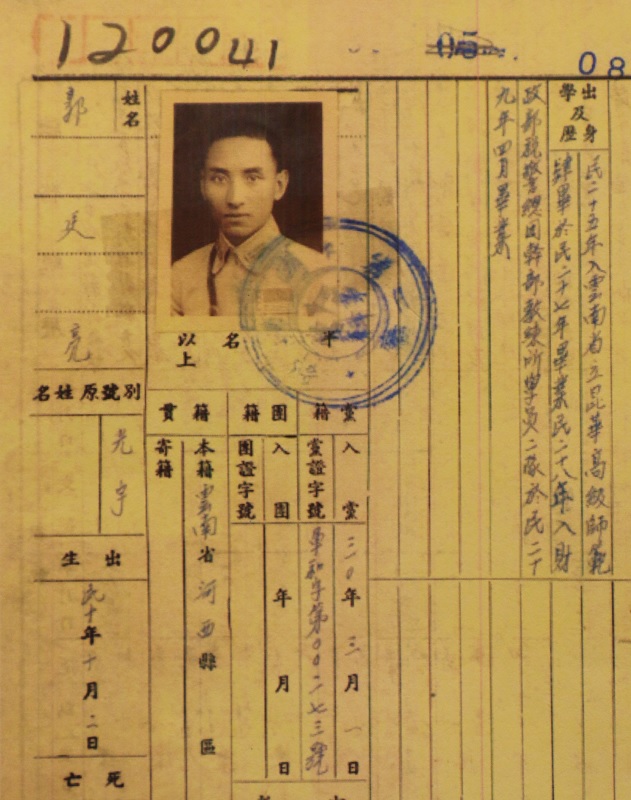 120041
05
08
出身及學歷
民二十五年入雲南省立昆華高級師範
肄畢於民二十七年畢業民二十八年入財
政部稅警總團幹部教練所學員二隊於民二十
九年四月畢業
姓名
郭廷亮
以上 名 平
黨籍
入黨 三〇年三月一日
黨證字號 軍和字第00二七三號
團籍
入團 年 月 日
團證字號
籍貫
本籍 雲南省河西縣 區
寄籍
別號原姓名
光宇
出生
民十年十月二日
死亡